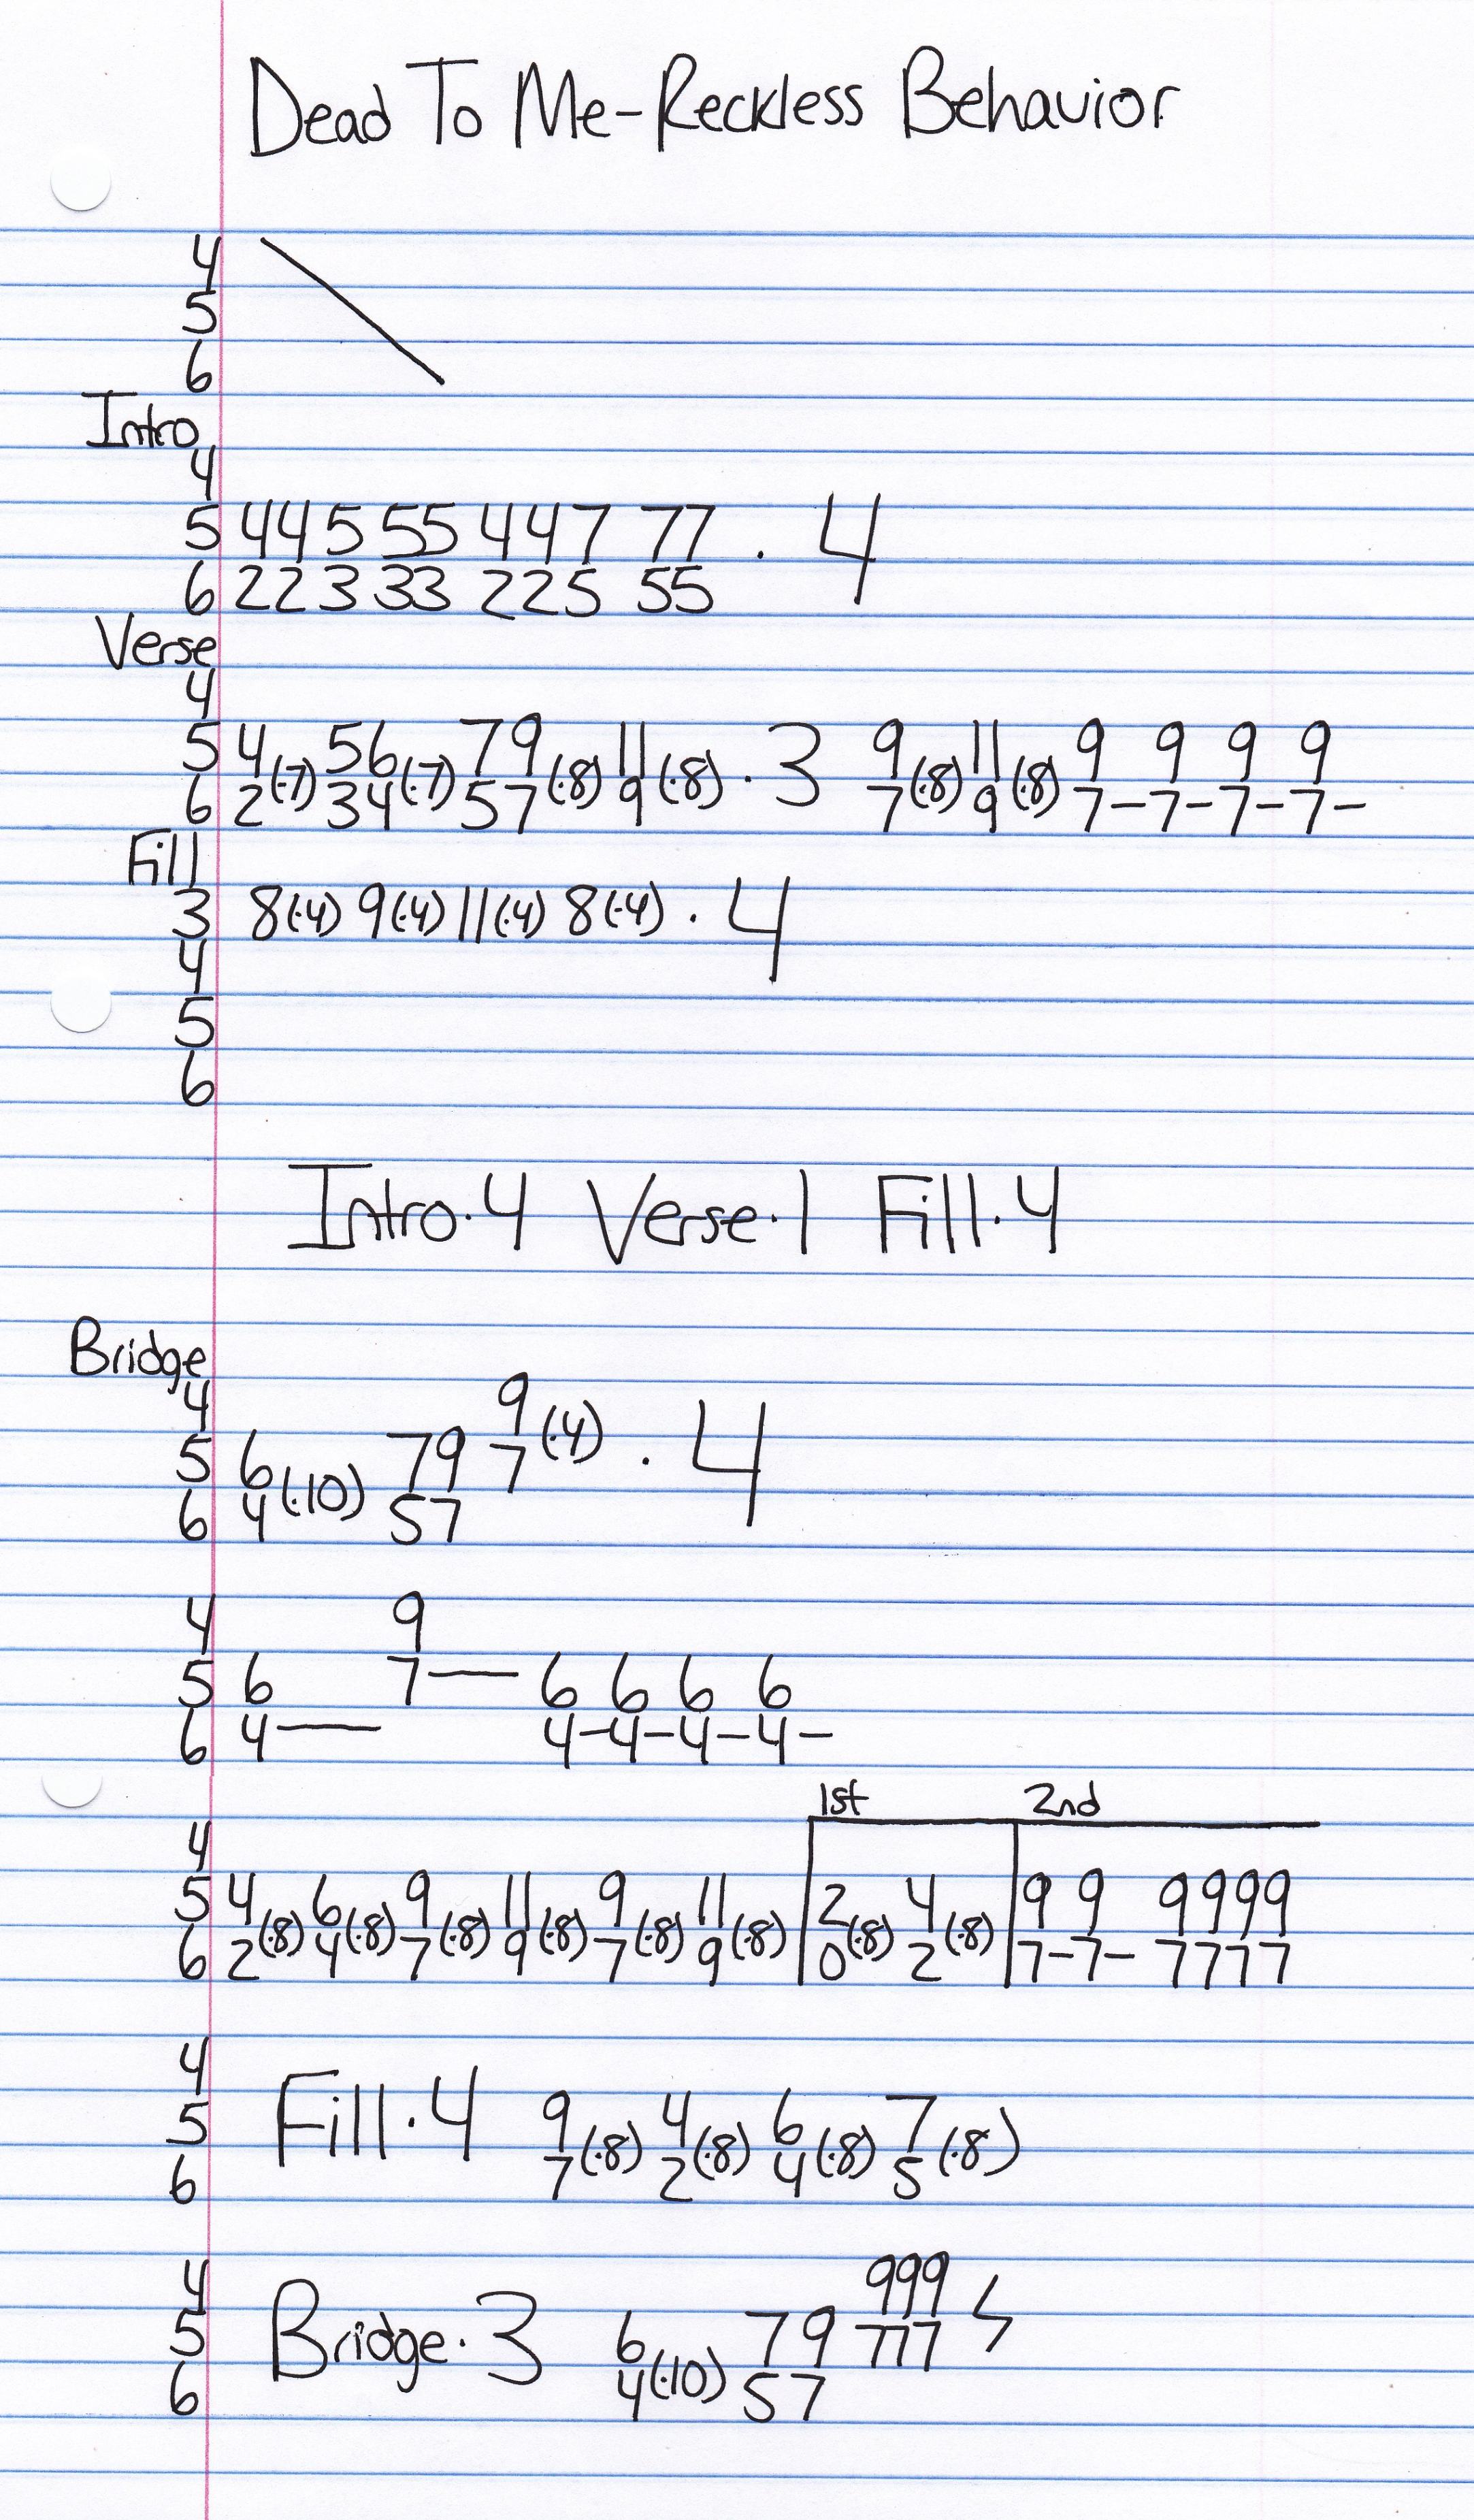 Dead To Me-Reckless Behavior
4
5
6
Intro
4
5 44 5 55 447 77 . 4
6 22 3 33 225 55
Verse
4
5 4 56 79 11 . 3 9 11 9 9 9 9
(·7) (·7) (·8) (·8) (·8) (·8)
6 2 34 57 9 7 9 7-7-7-7-
Fill
3 8(·4) 9(·4) 11(·4) 8(·4) . 4
4
5
6
Intro·4 Verse·1 Fill·4
Bridge
4 9
(·4)
5 6 79 7 . 4
(·10)
6 4 57
4 9
5 6 7— 6 6 6 6
6 4— 4-4-4-4-
1st 2nd
4
5 4 6 9 11 9 11 2 4 9 9 9999
(·8) (·8) (·8) (·8) (·8) (·8) (·8) (·8)
6 2 4 7 9 7 9 0 2 7-7- 7777
4
5 Fill·4 9 4 6 7
(·8) (·8) (·8) (·8)
6 7 2 4 5
4 999
5 Bridge·3 6 79 777
6 4(·10) 57